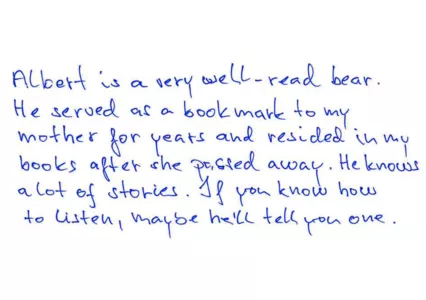 Albert is a very well-read bear.
He served as a bookmark to my
mother for years and resided in my
books after she passed away. He knows
a lot of stories. If you know how
to listen, maybe he'll tell you one.